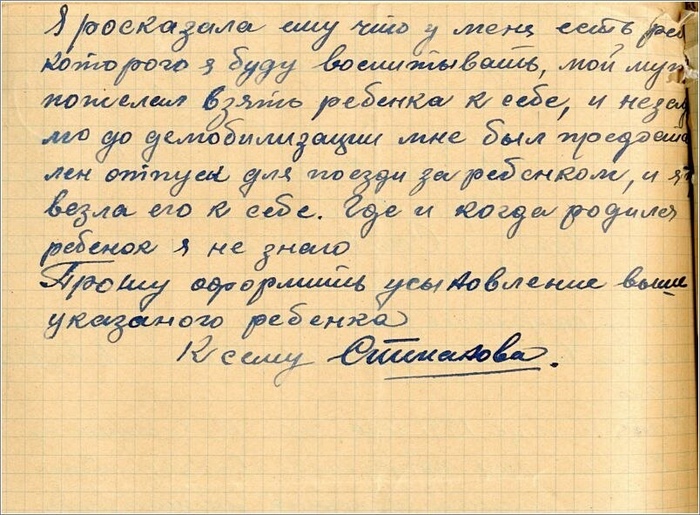 Я росказала ему что у меня есть реб
которого я буду воспитывать, мой муж
пожелал взять ребенка к себе, и незад
мо до демобилизации мне был предоста
лен отпуск для поезди за ребенком, и я п
везла его к себе. Где и когда родился
ребенок я не знаю
Прошу оформить усыновление выше
указаного ребенка
К сему